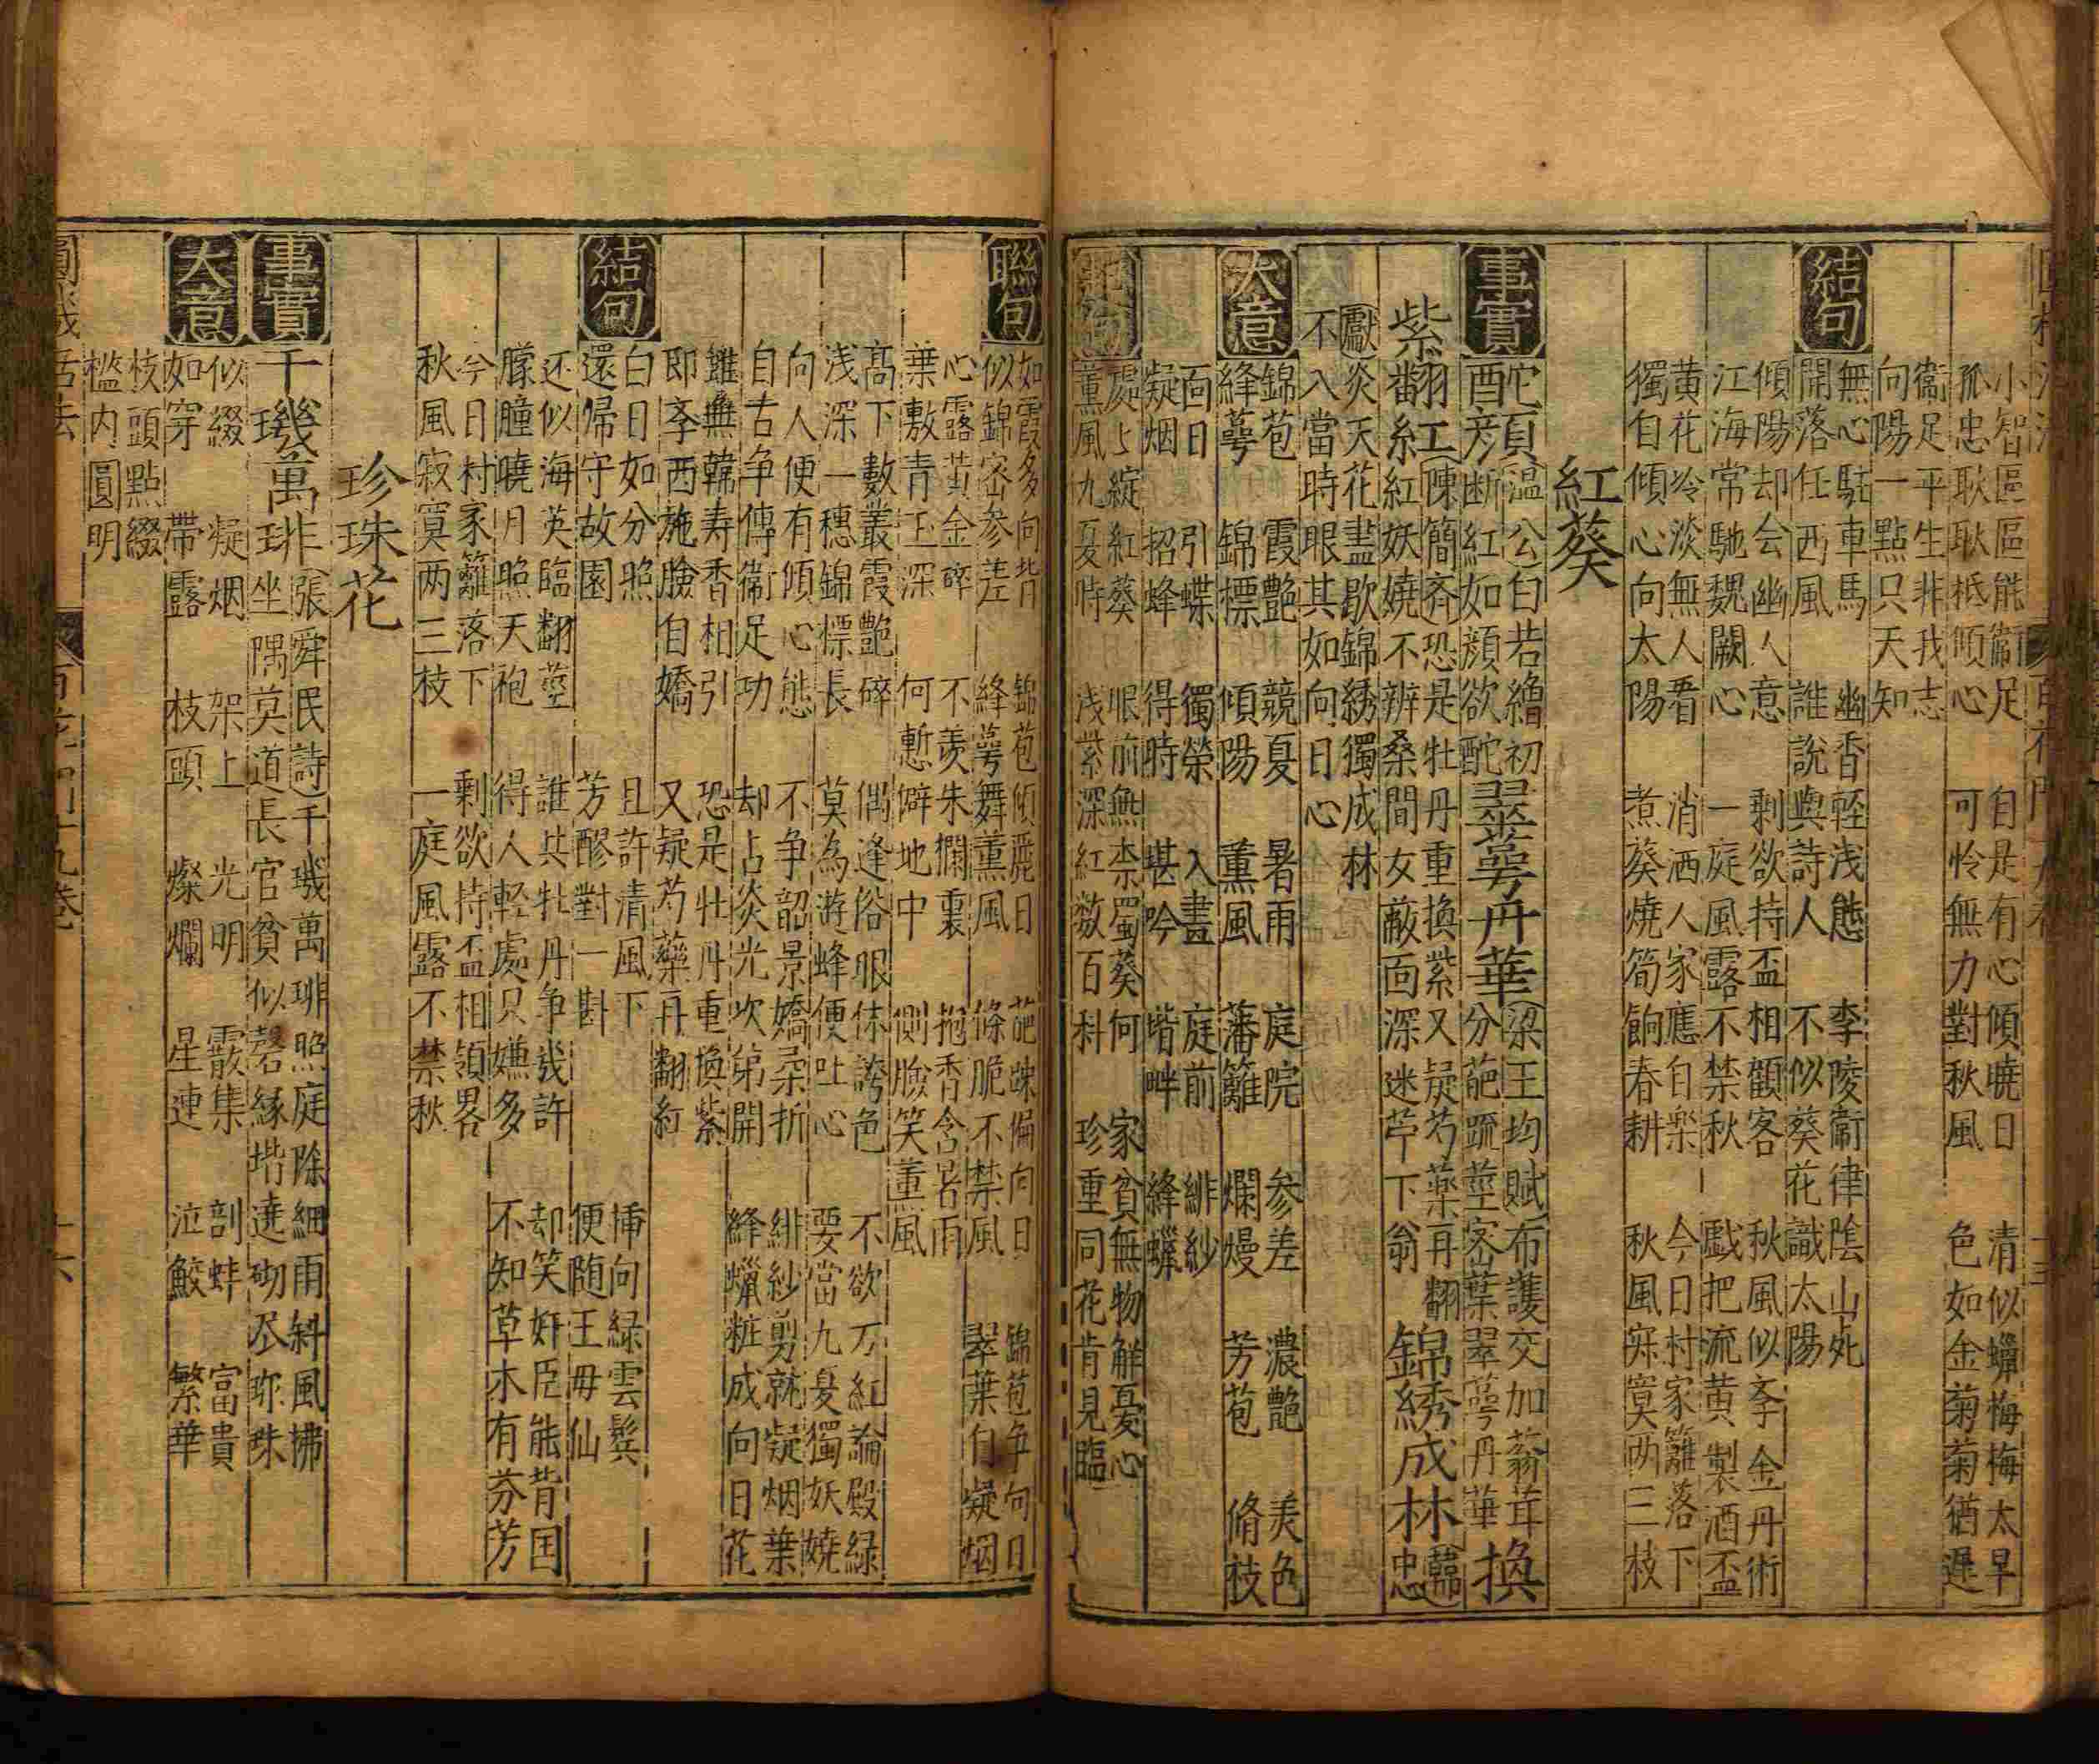 小智區區能衛足 自是有心傾曉日 清似蠟梅梅太早
孤忠耿耿柢傾心 可怜無力對秋風 色如金菊菊猶遲
衛足平生非我志
向陽一點只天知
結句
無心駐車馬 幽香輕浅態 李陵衛律陰山死
開落任西風 誰說與詩人 不似葵花識太陽
傾陽却会幽人意 剩欲持盃相顴客 秋風似夸金丹術
江海常馳魏闕心 一庭風露不禁秋 戯把流黄製酒盃
黄花冷淡無人看 消洒人家應自楽 今日村家籬落下
獨自傾心向太陽 煮葵燒筍餉春耕 秋風寂寞两三枝
紅葵
事實
酡顔 温公白若繒初断紅如顔欲酡 翠萼丹華 梁王均賦布護交加蓊茸分葩疏莖密葉翠萼丹華 換
紫翻紅 陳簡斉恐是牡丹重換紫又疑芍藥再翻紅妖嬈不辨桑間女蔽面深迷苧下翁 錦綉成林 韓忠
獻炎天花盡歇錦綉獨成林不入當時眼其如向日心
大意
錦苞 霞艷 競夏 暑雨 庭院 参差 濃艷 美色
絳萼 錦標 傾陽 薫風 藩籬 爛熳 芳苞 脩枝
面日 引蝶 獨榮 入畫 庭前 緋紗
疑烟 招蜂 得時 堪吟 堦畔 絳蠟
處处綻紅葵 眼前無柰蜀葵何 家貧無物解憂心
薫風九夏時 浅紫深紅数百科 珍重同花肯見臨
聯句
如霞多向背 錦苞傾麗日 葩踈偏向日 錦苞争向日
似錦密参差 絳萼舞薫風 條脆不禁風 翠葉自凝烟
心露黄金碎 不羡朱欄裏 抱香含暑雨
葉敷青玉深 何慙僻地中 側臉笑薫風
高下數叢霞艷碎 偶逢俗眼休誇色 不欲万紅論殿緑
浅深一穗錦標長 莫為遊蜂便吐心 要當九夏獨妖嬈
向人便有傾心態 不争韶景嬌朶折 緋紗剪就疑烟葉
自古争傳衛足功 却占炎光次第開 絳蠟粧成向日花
雖無韓寿香相引 恐是牡丹重換紫
即夸西施臉自嬌 又疑芍藥再翻紅
結句
白日如分照 且許清風下 揷向緑雲鬂
還帰守故園 芳醪對一斟 便随王毋仙
还似海英臨翻莖 誰共牡丹争幾許 却笑奸臣能背国
朦朣曉月照天袍 得人輕處只嫌多 不知草木有芬芳
今日村家籬落下 剩欲持盃相領畧
秋風寂寞两三枝 一庭風露不禁秋
珍珠花
事實
千璣萬琲 張舜民詩千璣萬琲照庭除細雨斜風拂坐隅莫道長官貧似磬緣堦遶砌尽珎珠
大意
似綴 凝烟 架上 光明 霰集 剖蚌 富貴
如穿 帶露 枝頭 燦爛 星連 泣鮫 繁華
枝頭點綴
檻内圓明